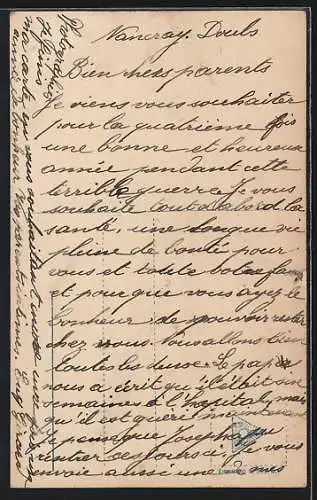 Nancray. Doubs
Bien chers parents
Je viens vous souhaiter
pour la quatrième fois
une bonne et heureux
année pendant cette
terrible guerre Je vous
souhaite tout d'abord la
santé, une longue vie
pleine de bonté pour
vous et toute votre
et pour que vous ayez le
bonheur de pouvoir rester
chez vous. Nous allons bien
toutes les deux. Le papa
nous a écrit qu'il était six
semaines à l'hôpital, mais
qu'il est guéri maintenant
Je pense que Joseph
ces jours ci, Je vous
envoie aussi une
Je finis
ma carte en vous souhaitant encore une
année de bonheur